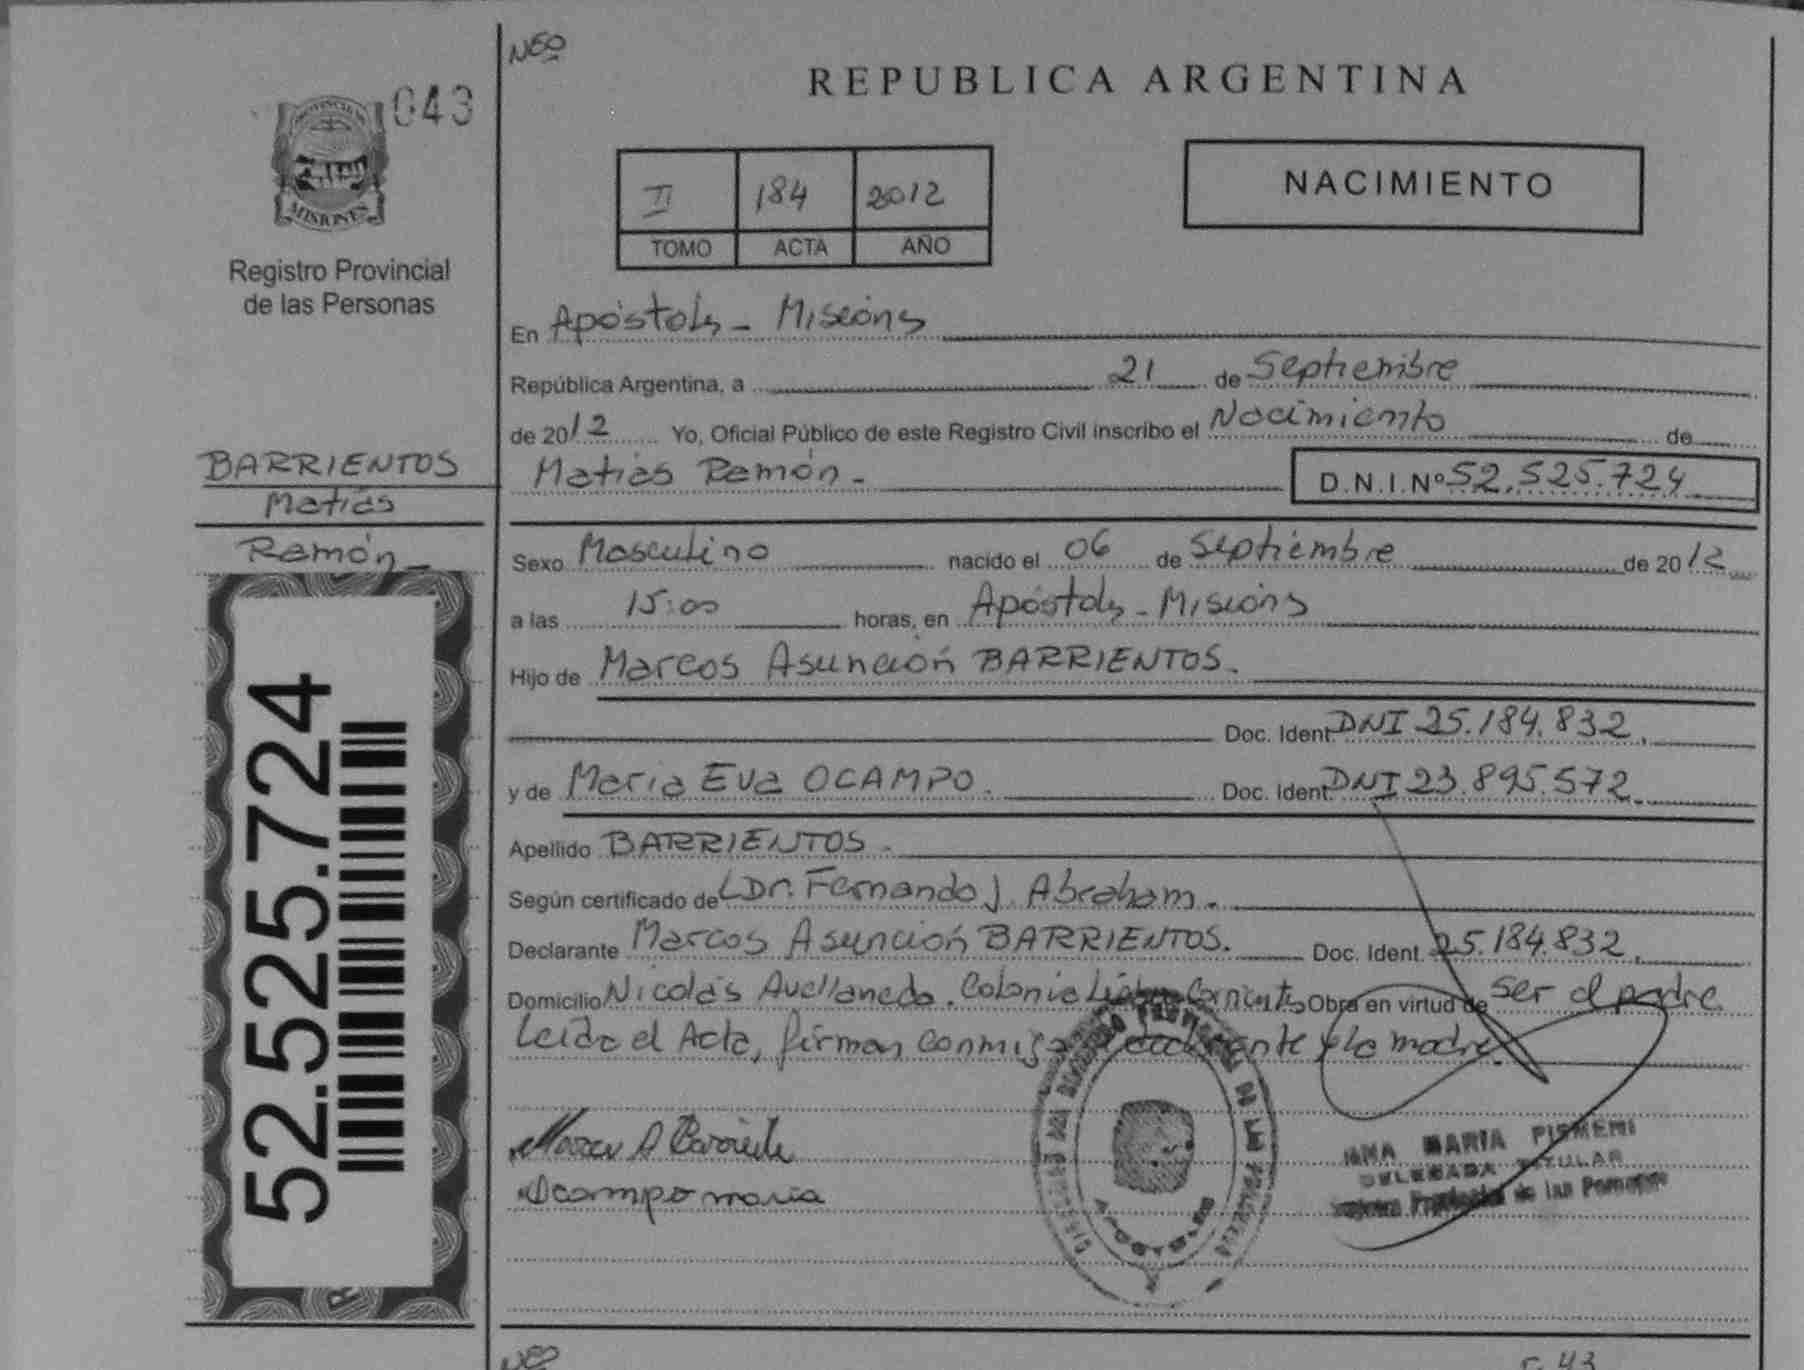 Nº
043
REPUBLICA ARGENTINA
MISIONES
Registro Provincial
de las Personas
II 184 2012
TOMO ACTA AÑO
NACIMIENTO
En Apóstoles - Misiones
República Argentina, a 21 de Septiembre
de 2012 Yo, Oficial Público de este Registro Civil inscribo el Nacimiento de
Matías Ramón - D.N.I.Nº 52.525.724
BARRIENTOS
Matías
Ramón -
Sexo Masculino nacido el 06 de Septiembre de 2012
a las 15:00 horas, en Apóstoles - Misiones
Hijo de Marcos Asunción BARRIENTOS.
Doc. Ident. DNI 25.184.832.
y de María Eva OCAMPO. Doc. Ident. DNI 23.895.572.
Apellido BARRIENTOS.
Según certificado de Dr. Fernando J. Abraham.
Declarante Marcos Asunción BARRIENTOS. Doc. Ident. 25.184.832.
Domicilio Nicolás Avellaneda. Colonia Obra en virtud de ser el padre
Leída el Acta, firman conmigo el declarante y la madre.
52.525.724
Ocampo maria
ANA MARIA PISMENI
DELEGADA TITULAR
Registro Provincial de las Personas
APOSTOLES
43